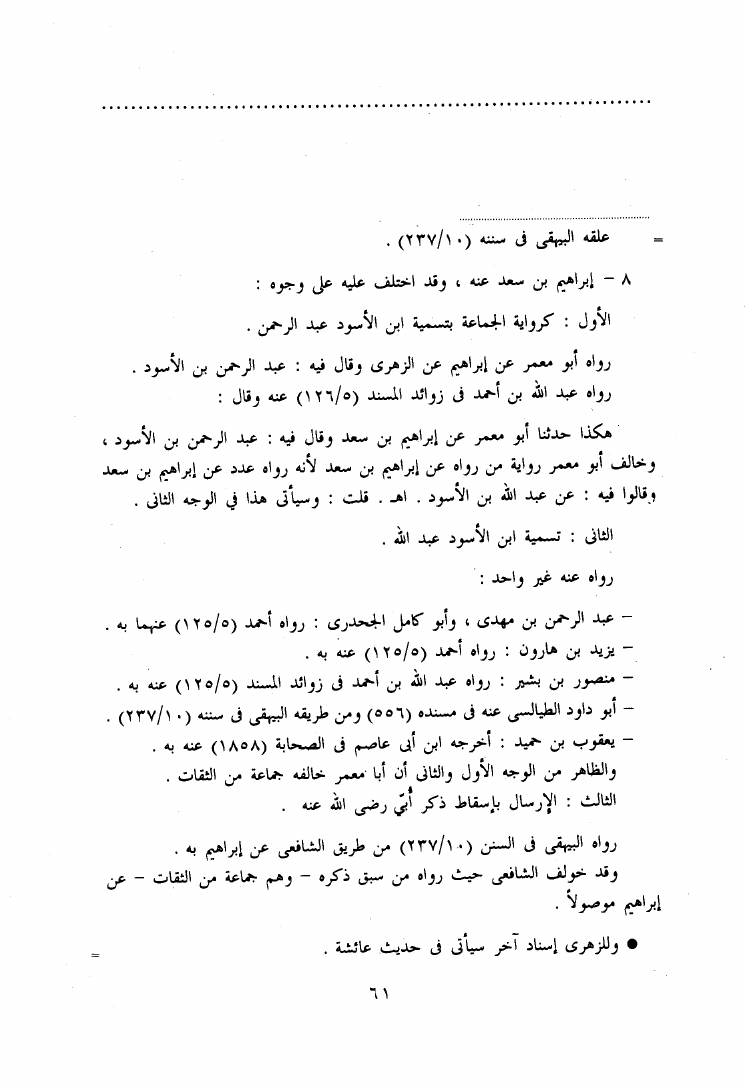 = علقه البيهقى فى سننه (٢٣٧/١٠) .
٨ – إبراهيم بن سعد عنه ، وقد اختلف عليه على وجوه :
الأول : كرواية الجماعة بتسمية ابن الأسود عبد الرحمن .
رواه أبو معمر عن إبراهيم عن الزهرى وقال فيه : عبد الرحمن بن الأسود .
رواه عبد الله بن أحمد فى زوائد المسند (١٢٦/٥) عنه وقال :
هكذا حدثنا أبو معمر عن إبراهيم بن سعد وقال فيه : عبد الرحمن بن الأسود ،
وخالف أبو معمر رواية من رواه عن إبراهيم بن سعد لأنه رواه عدد عن إبراهيم بن سعد
وقالوا فيه : عن عبد الله بن الأسود . اهـ . قلت : وسيأتى هذا في الوجه الثانى .
الثانى : تسمية ابن الأسود عبد الله .
رواه عنه غير واحد :
– عبد الرحمن بن مهدى ، وأبو كامل الجحدرى : رواه أحمد (١٢٥/٥) عنهما به .
– يزيد بن هارون : رواه أحمد (١٢٥/٥) عنه به .
– منصور بن بشير : رواه عبد الله بن أحمد فى زوائد المسند (١٢٥/٥) عنه به .
– أبو داود الطيالسى عنه فى مسنده (٥٥٦) ومن طريقه البيهقى فى سننه (٢٣٧/١٠) .
– يعقوب بن حميد : أخرجه ابن أبى عاصم فى الصحابة (١٨٥٨) عنه به .
والظاهر من الوجه الأول والثانى أن أبا معمر خالفه جماعة من الثقات .
الثالث : الإرسال بإسقاط ذكر أُبيّ رضى الله عنه .
رواه البيهقى فى السنن (٢٣٧/١٠) من طريق الشافعى عن إبراهيم به .
وقد خولف الشافعى حيث رواه من سبق ذكره – وهم جماعة من الثقات – عن
إبراهيم موصولاً .
● وللزهرى إسناد آخر سيأتى فى حديث عائشة .
=
٦١